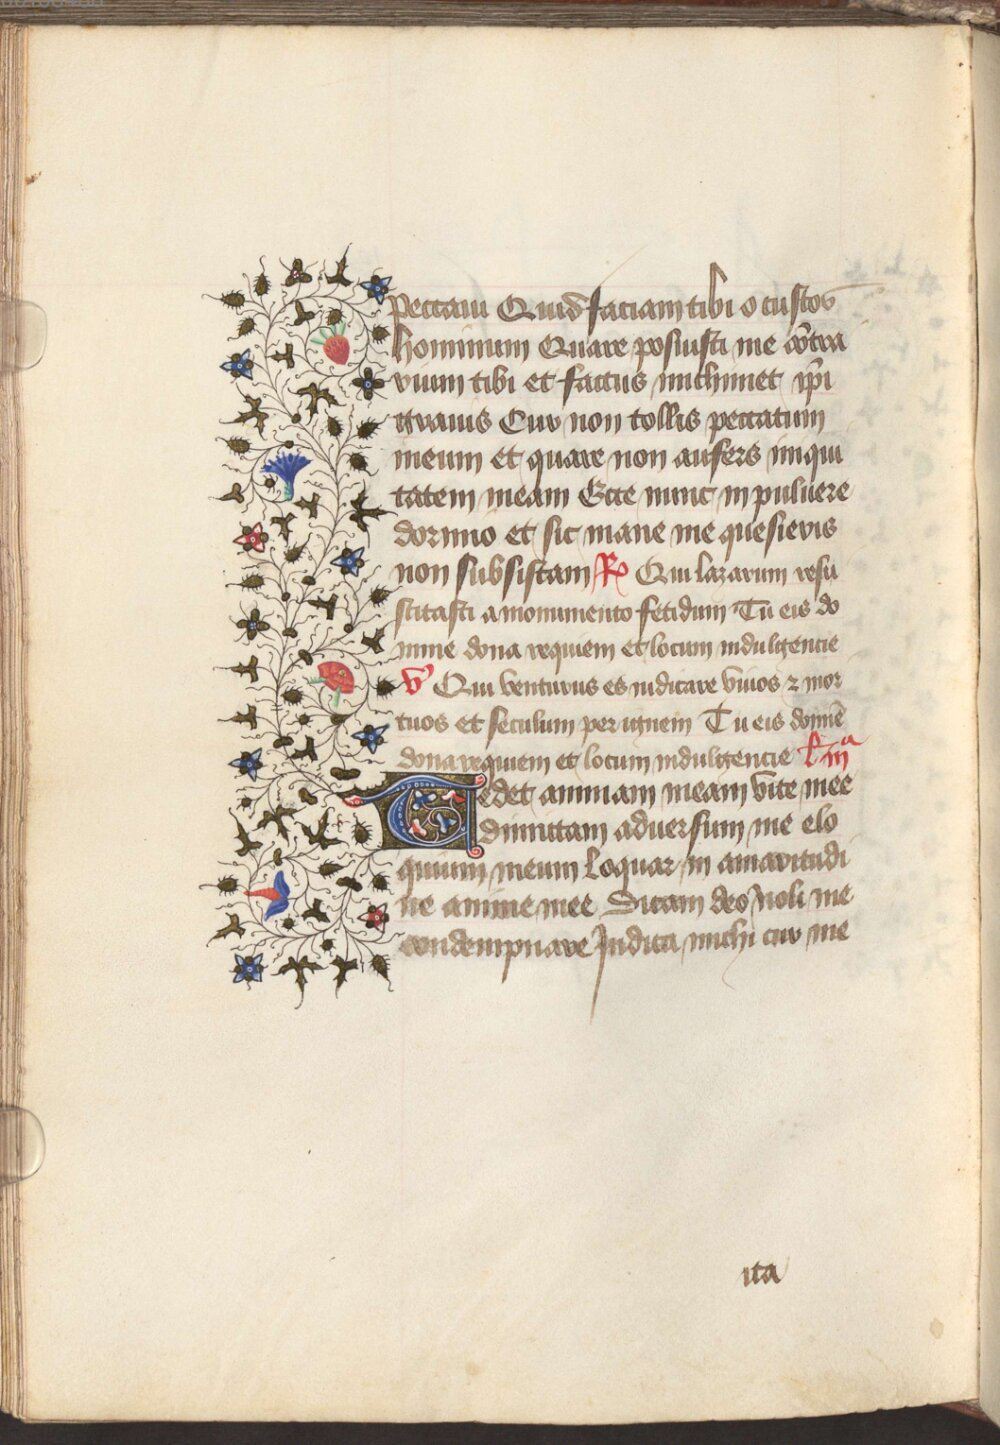 peccaui Quid faciam tibi o custos
hominum Quare posuisti me cōtra
rium tibi et factus michimet ip̄i
grauis Cur non tollis peccatum
meum et quare non aufers iniqui
tatem meam Ecce nunc in puluere
dormio et sic mane me quesieris
non subsistam R Qui lazarum resu
scitasti a monumento fetidum Tu eis do
mine dona requiem et locum indulgencie
V Qui venturus es iudicare viuos ⁊ mor
tuos et seculum per ignem Tu eis domīe
dona requiem et locum indulgencie l'm̄ᵃ
Tedet animam meam vite mee
dimittam aduersum me elo
quium meum loquar in amaritudi
ne anime mee Dicam deo Noli me
condempnare Indica michi cur me
ita